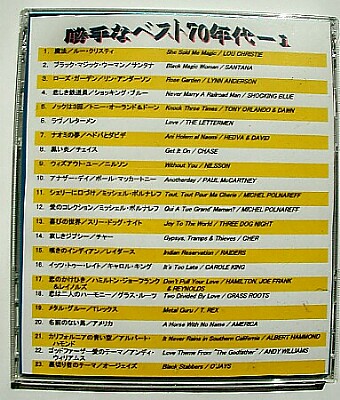 勝手なベスト70年代ー1
1. 魔法／ルー・クリスティ She Sold Me Magic / LOU CHRISTIE
2. ブラック・マジック・ウーマン／サンタナ Black Magic Woman / SANTANA
3. ローズ・ガーデン／リン・アンダーソン Rose Garden / LYNN ANDERSON
4. 悲しき鉄道員／ショッキング・ブルー Never Marry A Railroad Man / SHOCKING BLUE
5. ノックは3回／トニー・オーランド＆ドーン Knock Three Times / TONY ORLANDO & DAWN
6. ラブ／レターメン Love / THE LETTERMEN
7. ナオミの夢／ヘドバとダビデ Ani Holem al Naomi / HEDVA & DAVID
8. 黒い炎／チェイス Get It On / CHASE
9. ウィズアウト・ユー／ニルソン Without You / NILSSON
10. アナザー・デイ／ポール・マッカートニー Anotherday / PAUL McCARTNEY
11. シェリーに口づけ／ミッシェル・ポルナレフ Tout, Tout Pour Ma Cherie / MICHEL POLNAREFF
12. 愛のコレクション／ミッシェル・ポルナレフ Qui A Tue Grand' Maman? / MICHEL POLNAREFF
13. 喜びの世界／スリー・ドッグ・ナイト Joy To The World / THREE DOG NIGHT
14. 哀しきジプシー／チャー Gypsys, Tramps & Thieves / CHER
15. 嘆きのインディアン／レイダース Indian Reservation / RAIDERS
16. イッツ・トゥー・レイト／キャロル・キング It's Too Late / CAROLE KING
17. 恋のかけひき／ハミルトン・ジョーフランク Don't Pull Your Love / HAMILTON, JOE FRANK
＆レイノルズ & REYNOLDS
18. 恋は二人のハーモニー／グラス・ルーツ Two Divided By Love / GRASS ROOTS
19. メタル・グルー／Tレックス Metal Guru / T. REX
20. 名前のない馬／アメリカ A Horse With No Name / AMERICA
21. カリフォルニアの青い空／アルバート・ It Never Rains in Southern California / ALBERT HAMMOND
ハモンド
22. ゴッドファーザー愛のテーマ／アンディ・ Love Theme From "The Godfather" / ANDY WILLIAMS
ウィリアムス
23. 裏切り者のテーマ／オージェイズ Black Stabbers / O'JAYS